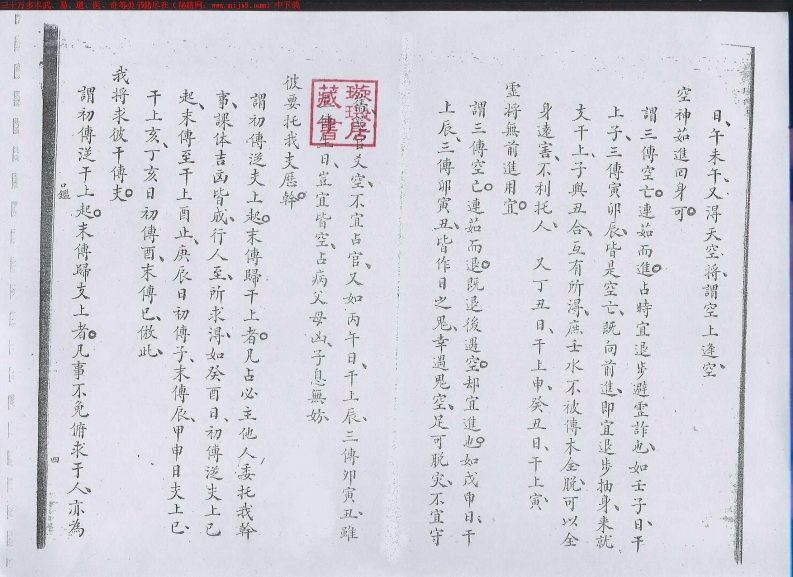 三十万多本武、易、道、医、奇等类书籍尽在（秘籍网：www.miji8.com）中下载
日、午未、午又淂天空、將、謂空上逢空、
空神茹進回身可
謂三傳空亡連茹而進占時宜退步避霊詐也、如壬子日、干
上子、三傳寅卯辰、皆是空亡、既向前進、即宜退步抽身、来就
支干上子與丑合、互有所淂、庶壬水不被傳木全脱、可以全
身遠害、不利托人、又丁丑日、干上申、癸丑日、干上寅、
霊將無前進用宜
謂三傳空亡連茹而退既退後遇空却宜進也如戊申日、干
上辰、三傳卯寅丑、皆作日之鬼、幸遇鬼空、足可脱灾、不宜守
官爻空、不宜占官、又如丙午日、干上辰、三傳卯寅丑、雖
生日、豈宜皆空、占病父母凶、子息無妨
彼要托我支歴幹
謂初傳送支上起末傳歸干上者凡占必主他人委托我幹
事、課体吉凶皆成、行人至、所求淂、如癸酉日、初傳送支上巳
起、末傳至干上酉止、庚辰日初傳子、末傳辰、甲申日支上巳
干上亥、丁亥日初傳酉、末傳巳、倣此、
我将求彼干傳支
謂初傳送干上起末傳歸支上者凡事不免俯求于人、亦為
口鑑
四
璇璣居
藏書